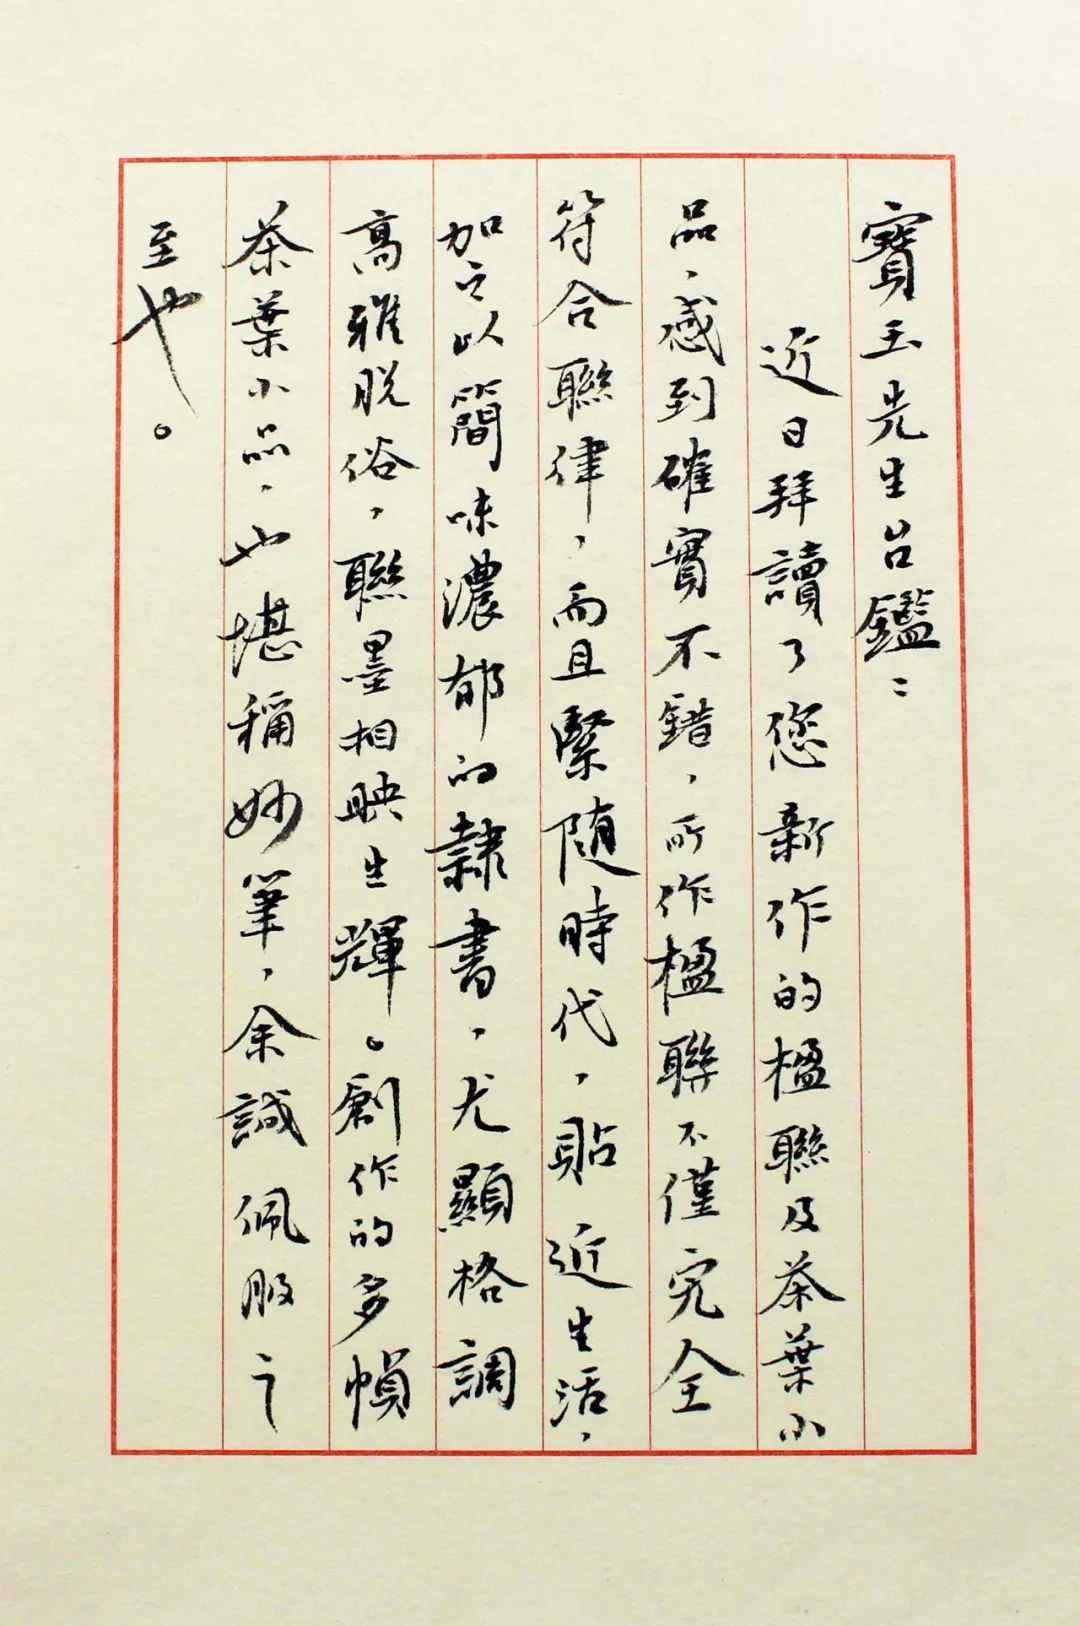 寶玉先生台鑑：
近日拜讀了您新作的楹聯及茶葉小
品，感到確實不錯，所作楹聯不僅完全
符合聯律，而且緊随時代，貼近生活，
加之以簡味濃郁的隸書，尤顯格調
高雅脱俗，聯墨相映生輝。創作的多幀
茶葉小品，也堪稱妙筆，余誠佩服之
至也。